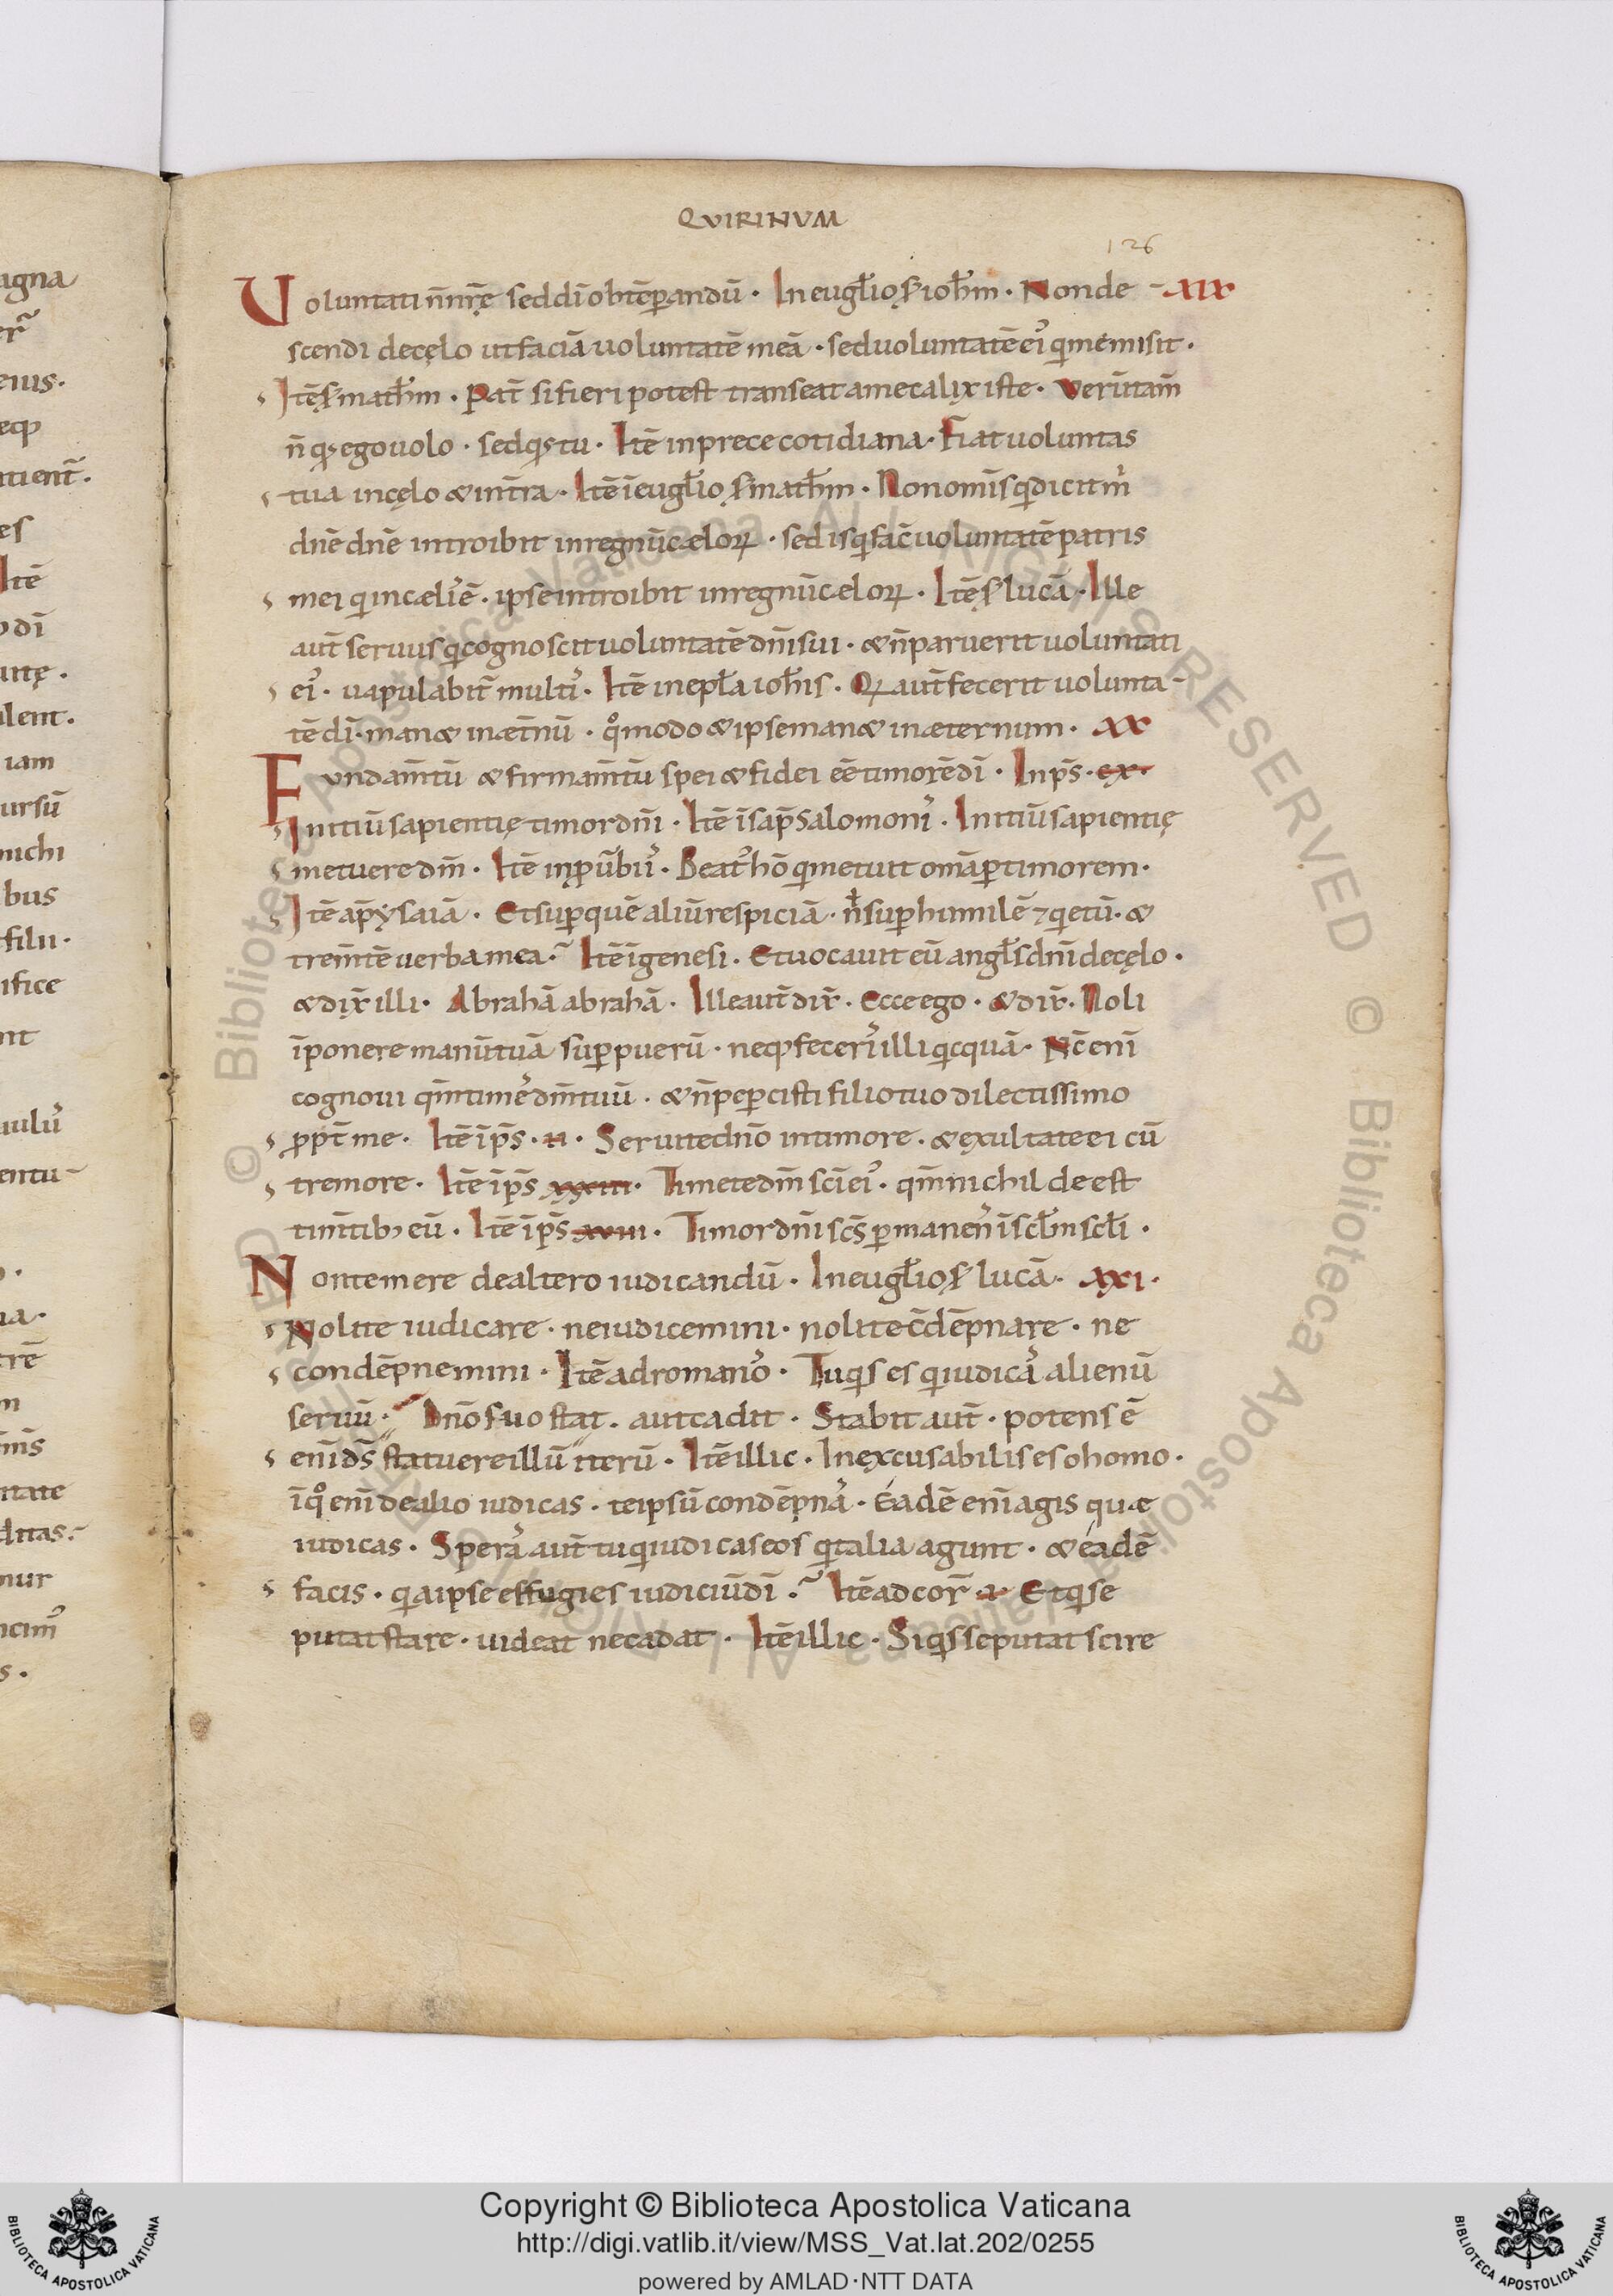 QVIRINVM
126
agna
Voluntati n̄ nrę̄ sed dī obtēꝑandū · In eugl̄io ẜ ioh̄m · Non de- XIX
scendi de cęlo ut faciā uoluntatē meā · sed uoluntatē eiꝰ qui me misit ·
eius.
Itē ẜ math̄m · Pat̄ si fieri potest transeat a me calix iste · Verūtam̄
n̄ qđ ego uolo · sed qđ tu · Itē in prece cotidiana · Fiat uoluntas
tient̄.
tua in cęlo & in tr̄a · Itē ī eugl̄io ẜ math̄m · Non omīs qui dicit m̄
es
dn̄e dn̄e introibit in regnū cæloꝝ · sed is qui fac̄ uoluntatē patris
Itē
mei qui in cælis ē · ipse introibit in regnū cæloꝝ · Itē ẜ lucā · Ille
dī
aut̄ seruus qui cognoscit uoluntatē dn̄i sui · & n̄ paruerit uoluntati
eiꝰ · uapulabit̄ multis · Itē in epl̄a ioh̄is · Qui aut̄ fecerit uolunta-
lent.
tē dī · man& in æt̄nū · quomodo & ipse man& in æternum · XX
iam
Fundam̄tū & firmam̄tū spei & fidei eē timorē dī · In ps̄ · cx ·
ursū
Initiū sapientię timor dn̄i · Itē ī sap̄ Salomonis · Initiū sapientię
michi
metuere dm̄ · Itē in ꝓūbiis · Beatꝰ hō qui metuit omā ꝑ timorem ·
bus
Itē ap̄ ysaiā · Et super quē aliū respiciā · n̄ super humilē ⁊ quietū · &
filii ·
trem̄tē uerba mea · Itē ī genesi · Et uocauit eū angl̄s dn̄i de cęlo ·
ifice
& dix̄ illi · Abrahā abrahā · Ille aut̄ dix̄ · Ecce ego · & dix̄ · Noli
nt
īponere manū tuā super puerū · neqꝫ feceris illi quicquā · Nc̄ enī
cognoui qm̄ times dm̄ tuū · & n̄ peꝑcisti filio tuo dilectissimo
ꝓpt̄ me · Itē ī ps̄ · II · Seruite dn̄o in timore · & exultate ei cū
tremore · Itē ī ps̄ XXXIII · Timete dm̄ scī eiꝰ · qm̄ nichil deest
tim̄tibꝫ eū · Itē ī ps̄ XVIII · Timor dn̄i scs̄ ꝑmanens ī scl̄m scl̄i ·
Non temere de altero iudicandū · In eugl̄io ẜ lucā · XXI ·
Nolite iudicare · ne iudicemini · nolite c̄dēpnare · ne
condēpnemini · Itē ad romanos · Tu quis es qui iudicas alienū
seruū · Dn̄o suo stat · aut cadit · Stabit aut̄ · potens ē
enī ds̄ statuere illū iterū · Itē illic · Inexcusabilis es o homo ·
ī quo enī de alio iudicas · te ipsū condēpnas · Eadē enī agis quæ
iudicas · Speras aut̄ tu qui iudicas eos qui talia agunt · & eadē
facis · quia ipse effugies iudiciū dī · Itē ad cor̄ I · Et qui se
putat stare · uideat ne cadat · Itē illic · Si quis se putat scire
Copyright © Biblioteca Apostolica Vaticana
http://digi.vatlib.it/view/MSS_Vat.lat.202/0255
powered by AMLAD·NTT DATA
BIBLIOTECA APOSTOLICA VATICANA
BIBLIOTECA APOSTOLICA VATICANA